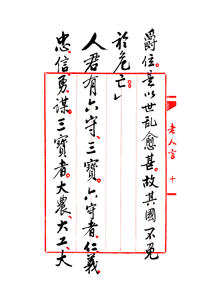 爵位。是以世乱愈甚。故其國不免
於危亡」
人君有六守、三寶。六守者、仁義、
忠、信、勇、謀。三寶者、大農、大工、大
老人言 十